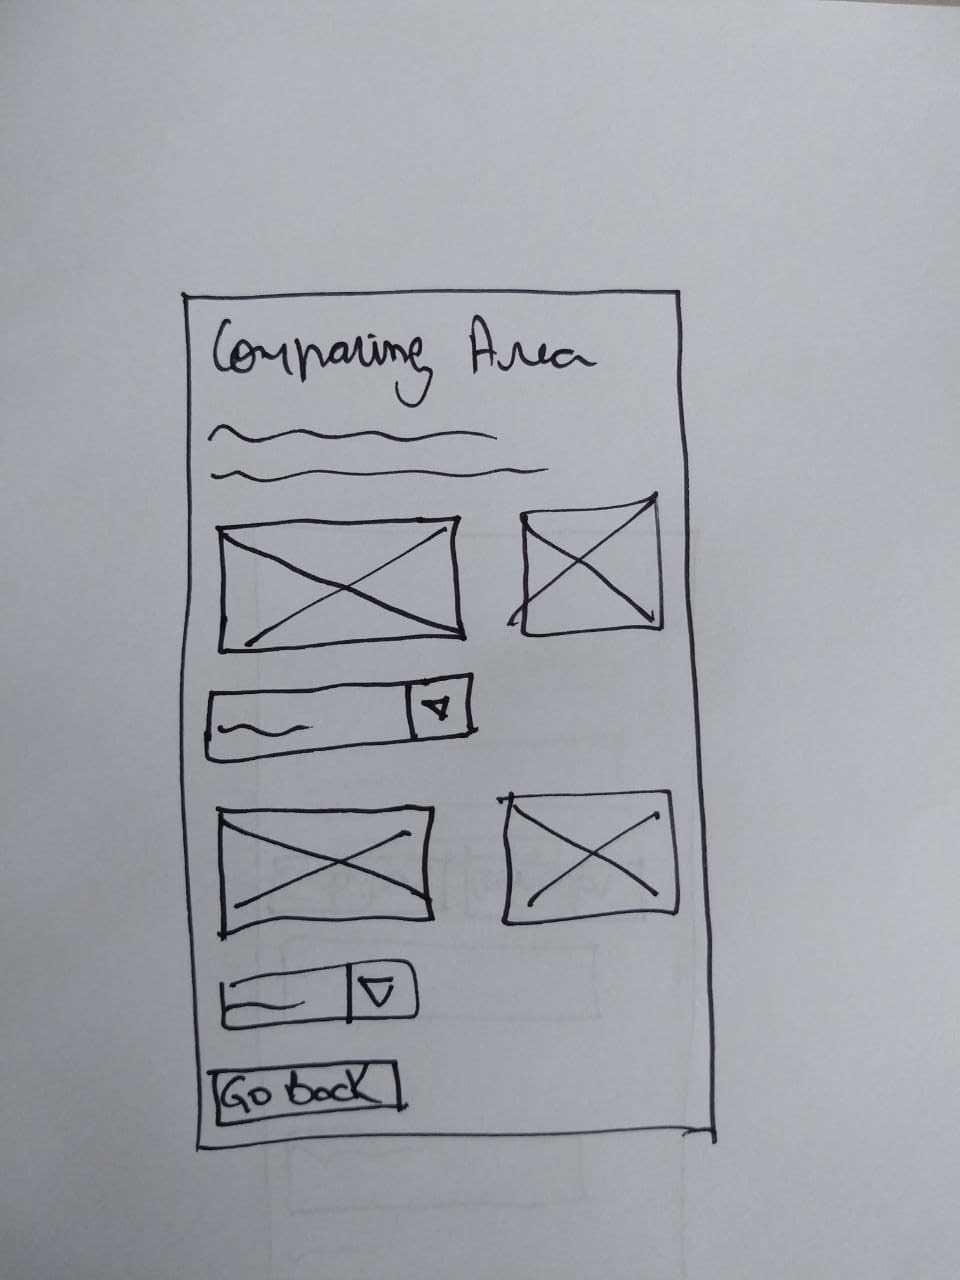 Comparing Area
Go back